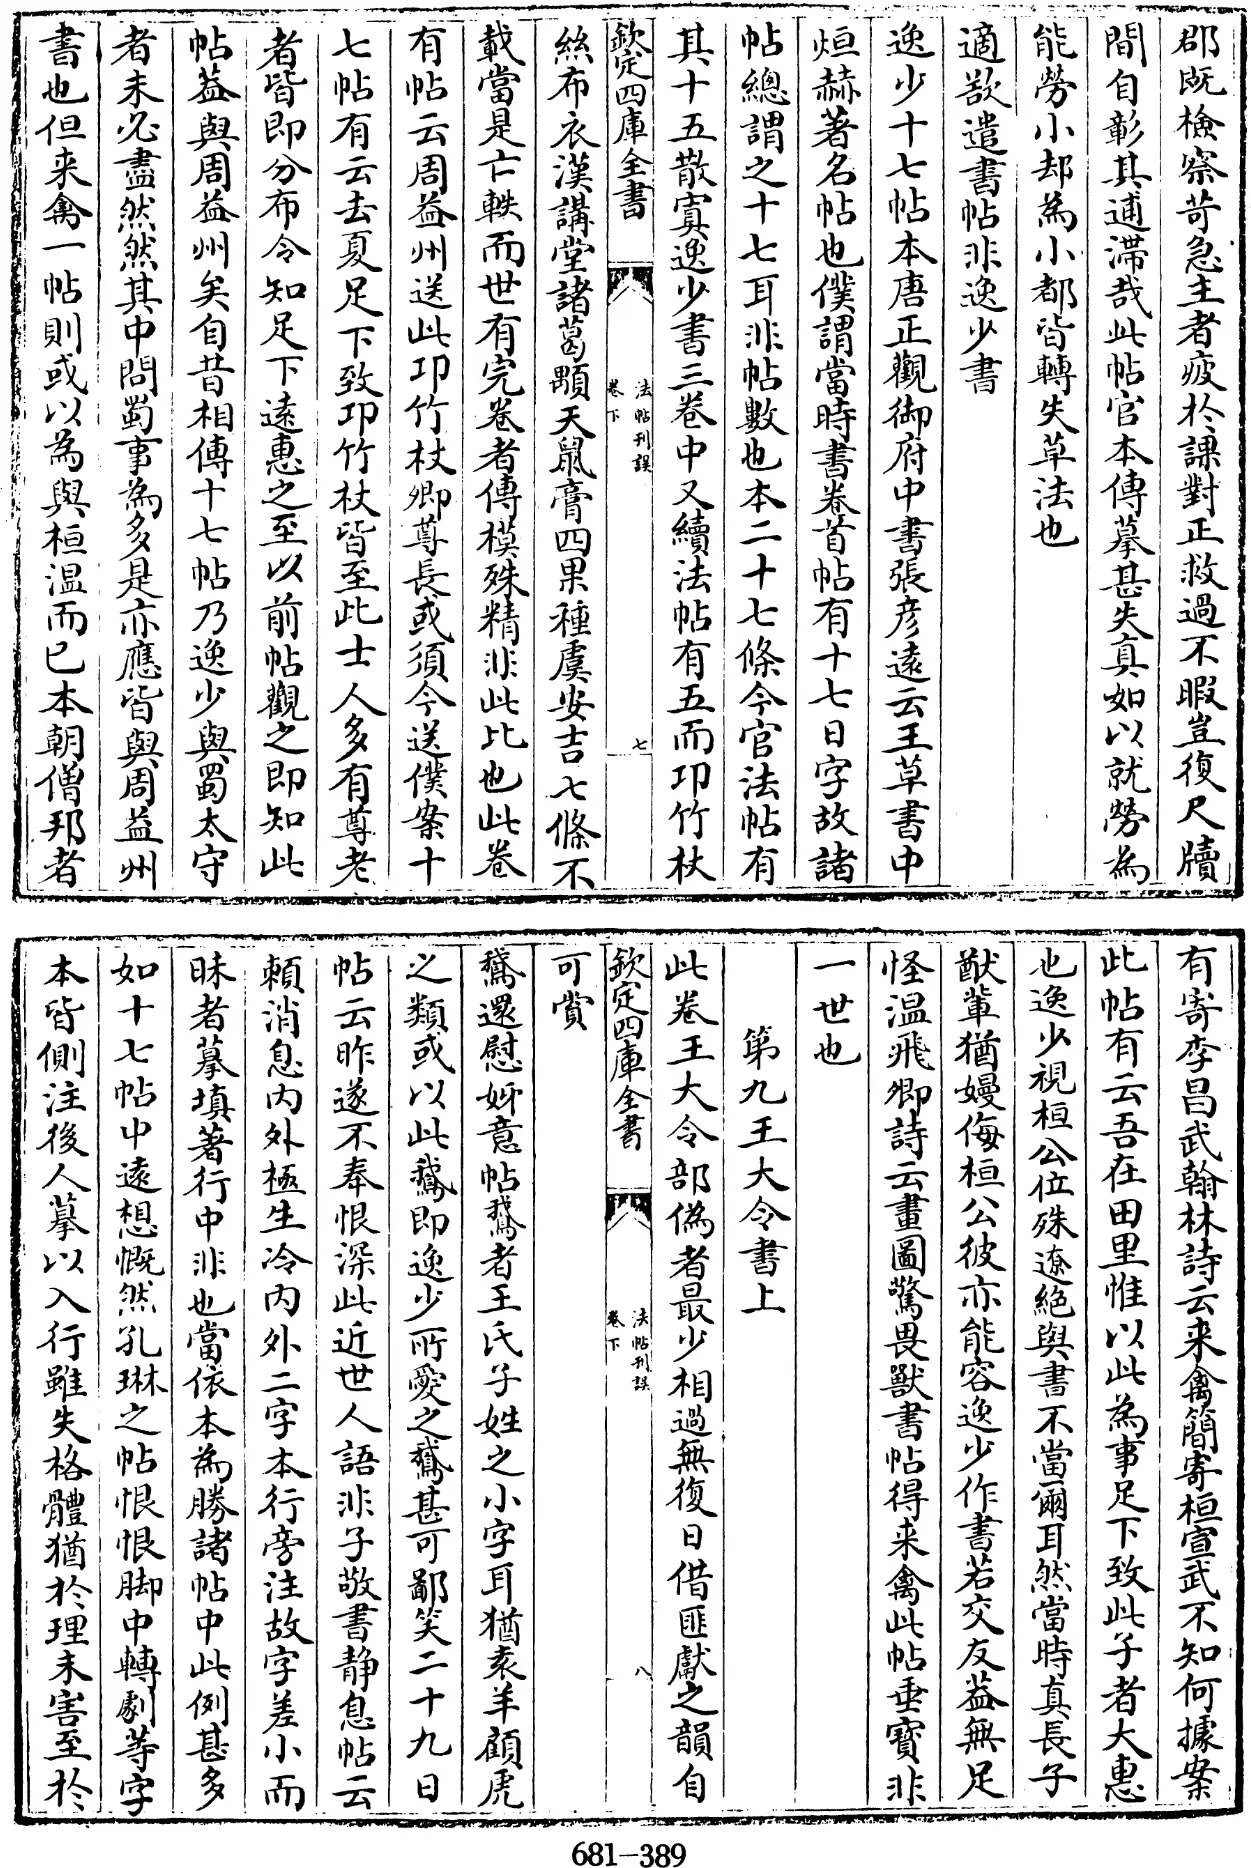 郡既檢察苛急主者疲於課對正救過不暇豈復尺牘
間自彰其逋滯哉此帖官本傳摹甚失真如以就勞為
能勞小却為小都皆轉失草法也
適欲遣書帖非逸少書
逸少十七帖本唐正觀御府中書張彦遠云王草書中
烜赫著名帖也僕謂當時書卷首帖有十七日字故諸
帖總謂之十七耳非帖數也本二十七條今官法帖有
其十五散寘逸少書三卷中又續法帖有五而邛竹杖
欽定四庫全書
法帖刊誤
卷下
七
絲布衣漢講堂諸葛顒天鼠膏四果種虞安吉七條不
載當是亡軼而世有完卷者傳模殊精非此比也此卷
有帖云周益州送此邛竹杖卿尊長或須今送僕案十
七帖有云去夏足下致邛竹杖皆至此士人多有尊老
者皆即分布令知足下遠惠之至以前帖觀之即知此
帖葢與周益州矣自昔相傳十七帖乃逸少與蜀太守
者未必盡然然其中問蜀事為多是亦應皆與周益州
書也但来禽一帖則或以為與桓温而已本朝僧邦者
有寄李昌武翰林詩云来禽簡寄桓宣武不知何據案
此帖有云吾在田里惟以此為事足下致此子者大惠
也逸少視桓公位殊遼絶與書不當爾耳然當時真長子
猷輩猶嫚侮桓公彼亦能容逸少作書若交友葢無足
怪温飛卿詩云畫圖驚畏獸書帖得来禽此帖垂寶非
一世也
第九王大令書上
此卷王大令部偽者最少相過無復日借匪獻之韻自
欽定四庫全書
法帖刊誤
卷下
八
可賞
鵞還慰姊意帖鵞者王氏子姓之小字耳猶袁羊顧虎
之類或以此鵞即逸少所愛之鵞甚可鄙笑二十九日
帖云昨遂不奉恨深此近世人語非子敬書静息帖云
頼消息内外極生冷内外二字本行旁注故字差小而
昧者摹填著行中非也當依本為勝諸帖中此例甚多
如十七帖中遠想慨然孔琳之帖恨恨脚中轉劇等字
本皆側注後人摹以入行雖失格體猶於理未害至於
681-389